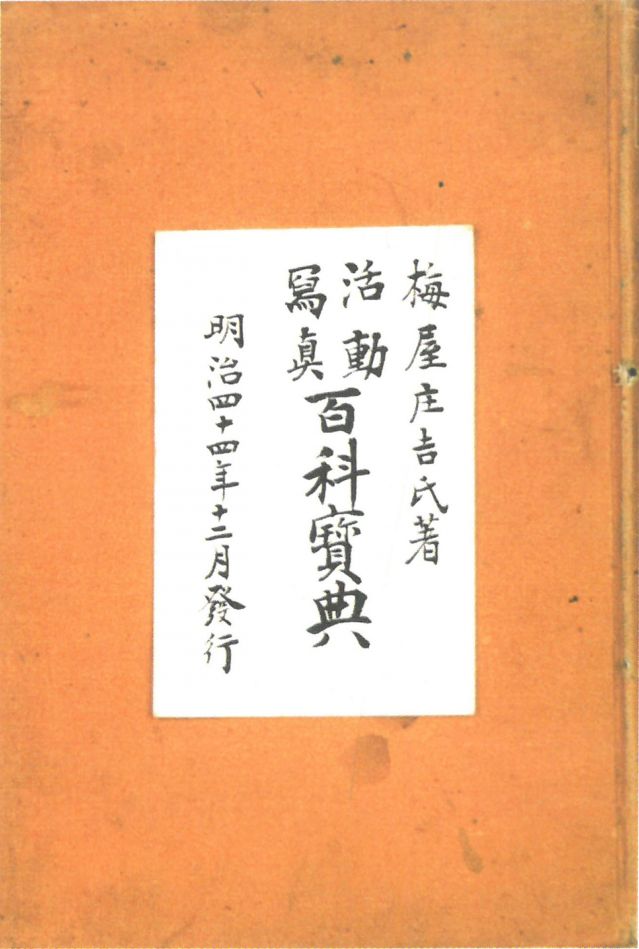 梅屋庄吉氏著
活動
寫眞
百科寶典
明治四十四年十二月發行